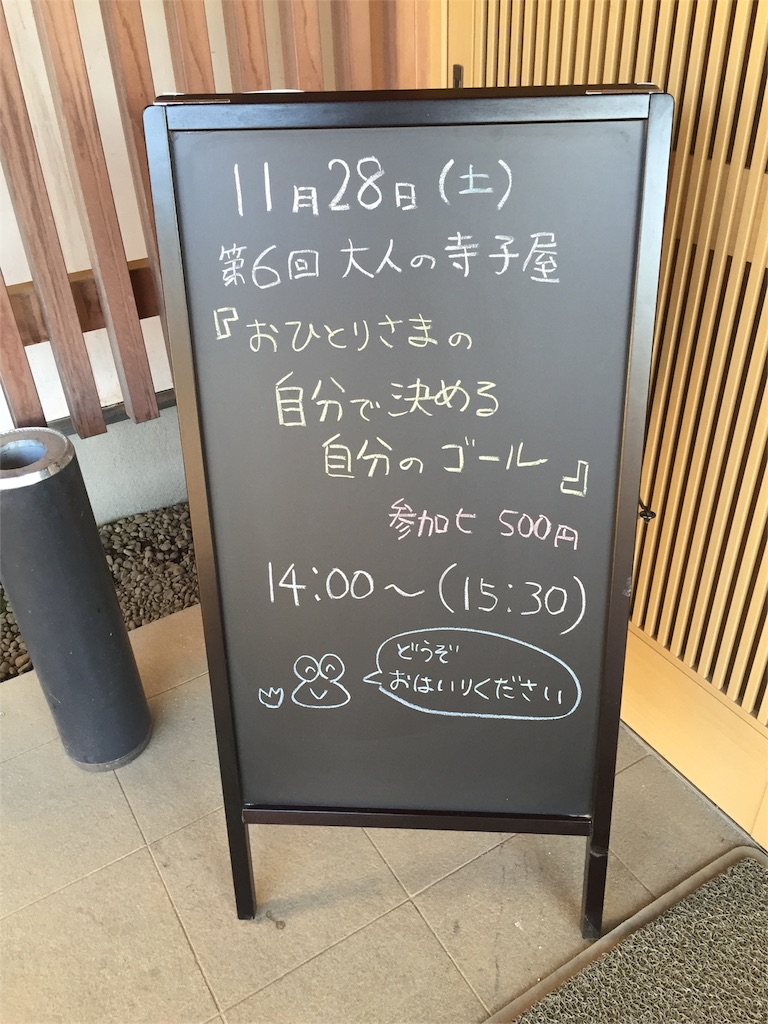 11月28日(土)
第6回 大人の寺子屋
『おひとりさまの
自分で決める
自分のゴール』
参加ヒ 500円
14:00〜(15:30)
どうぞ
おはいりください